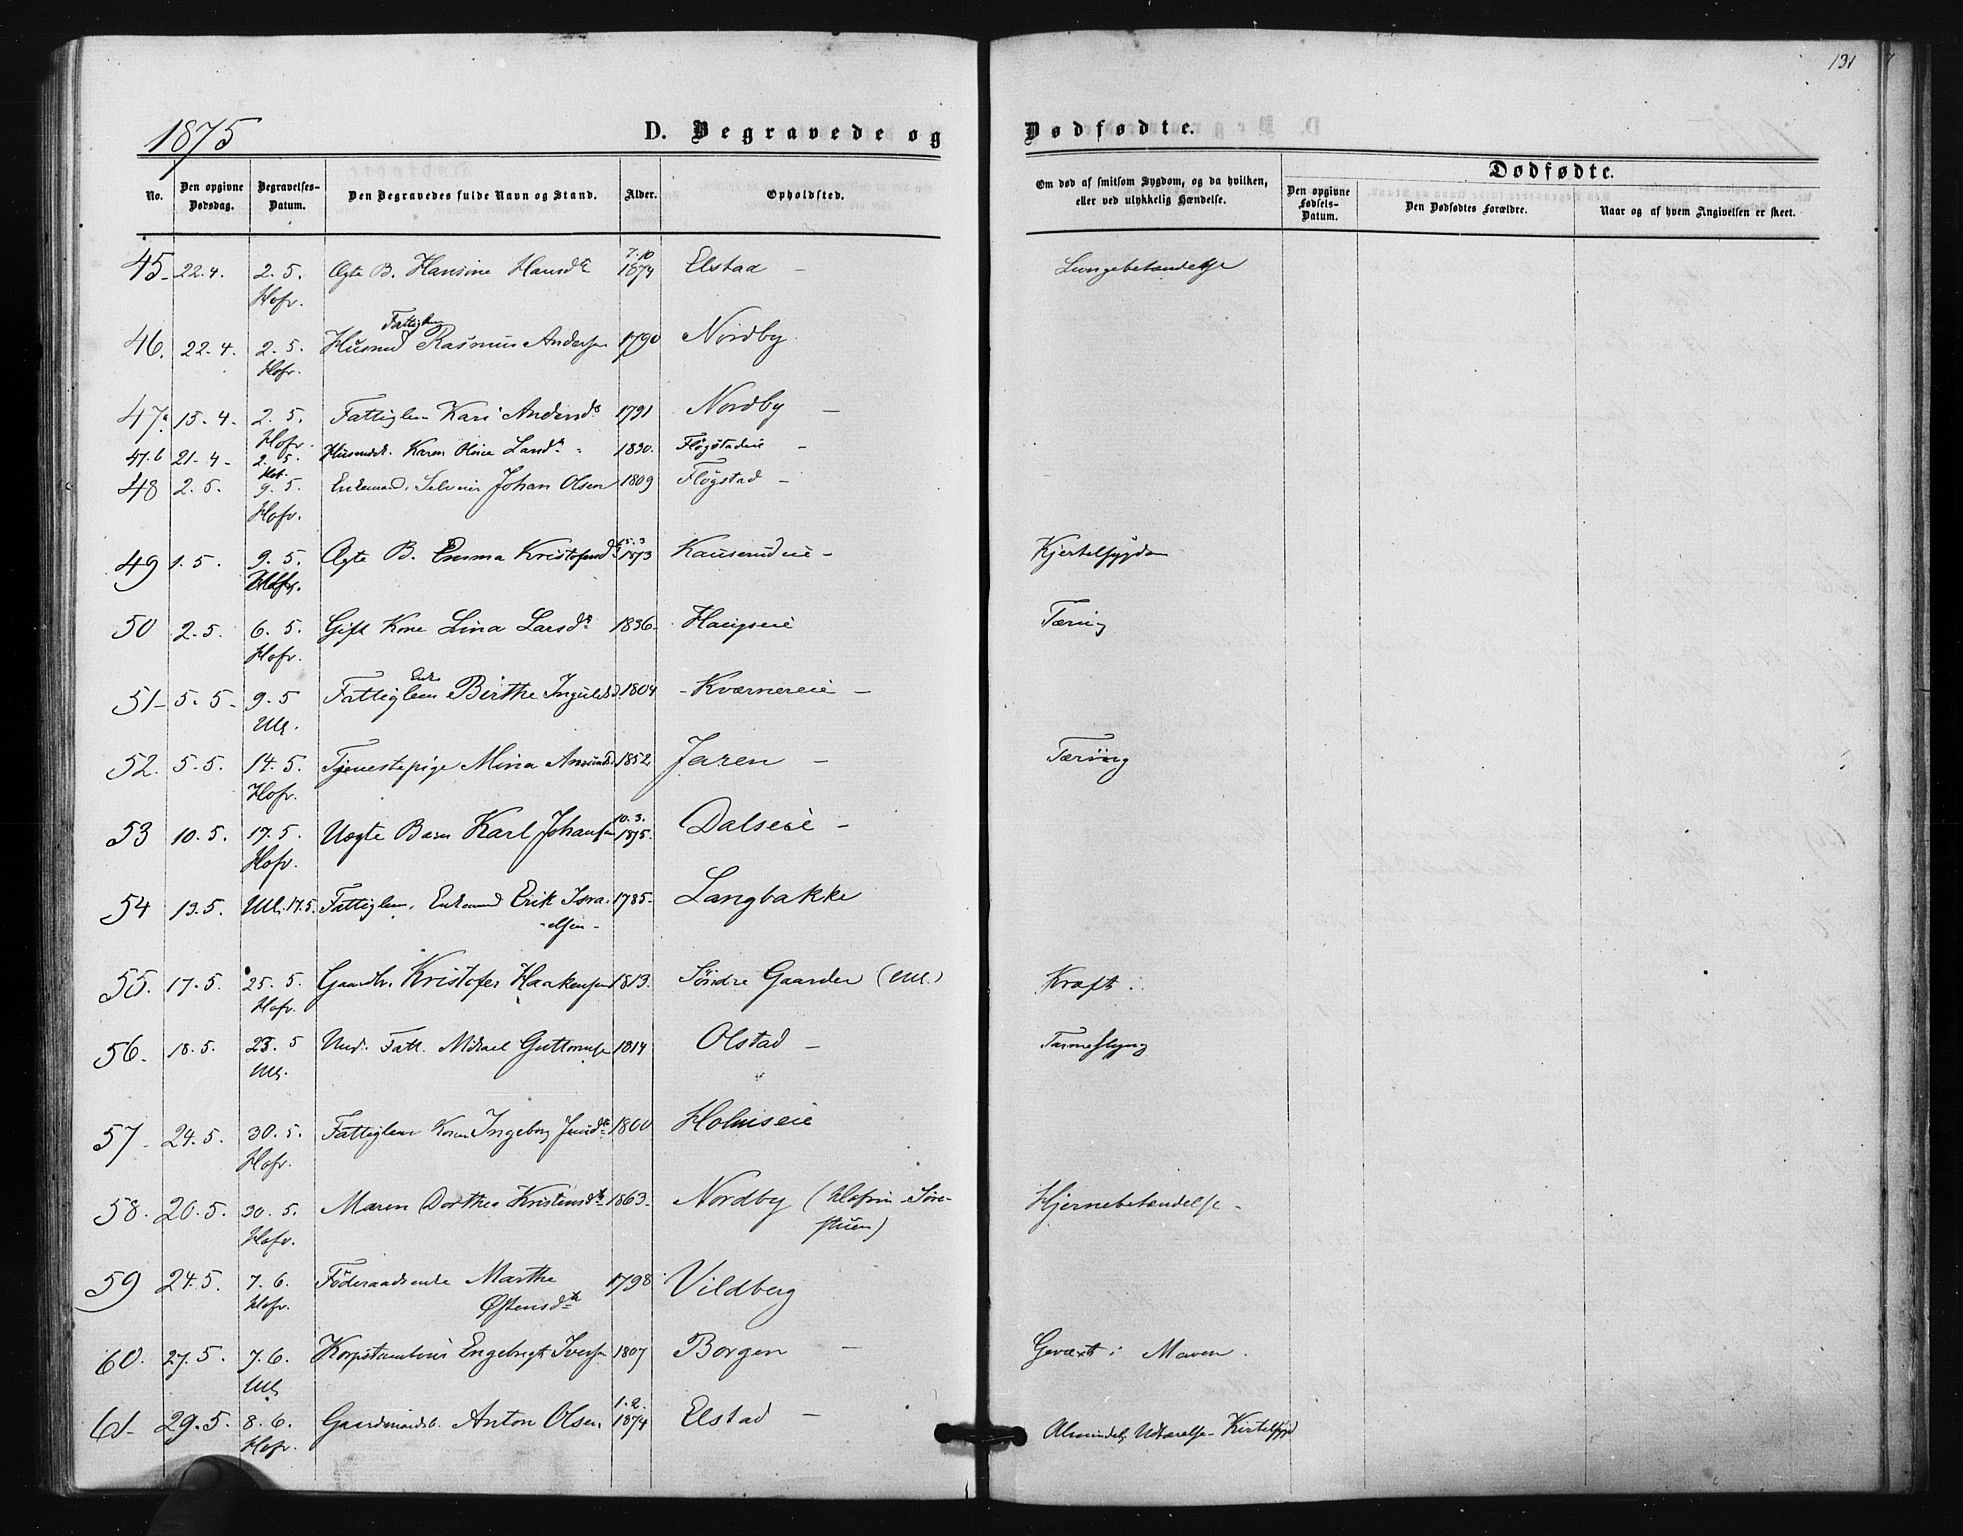 131
1875
D. Begravede og Dødfødte.
No.
Den opgivne Dødsdag.
Begravelses-Datum.
Den Begravedes fulde Navn og Stand.
Alder.
Opholdsted.
Om død af smitsom Sygdom, og da hvilken, eller ved ulykkelig Hændelse.
Dødfødte.
Den opgivne Fødsels-Datum.
Den Dødfødtes Forældre.
Naar og af hvem Angivelsen er skeet.
45 - 22.4. 2. 5. Ægte B. Hansine Hansdr 7.10 1874 Elstad - Lungebetændelse
Hofv.
Fattiglem
46. 22.4. 2.5. Husmd Rasmus Andersen 1790 Nordby
Hofv.
47a 15.4. 2.5. Fattiglem Kari Andersdr 1791 Nordby -
Hofv.
47.b 21.4 - 2.5. Husmdsk. Karen Oline Larsdr 1830. Fløgstadeie -
Hof.
48 2.5. 9.5. Enkemand, Selveier Johan Olsen 1809 Fløgstad -
Hofv.
49 1.5. 9.5. Ægte B. Emma Kristofersdr 15.3 1873 Kauserudeie - Kjertelsygdom
Hofv.
50 2.5. 6.5. Gift Kone Lina Larsdr 1836 - Haugseie Tæring
Hofv.
Enke
51 - 5.5 - 9.5 Fattiglem Birthe Ingulsd. 1804 - Kværnereie -
Ull.
52. 5.5. 14.5. Tjenestepige Mina Amunds. 1852 Jaren - Tæring
Hofv.
53 10.5. 17.5. Uægte Barn Karl Johansen 10.3. 1875. Dalseie -
Hofv.
54 13.5. Ull. 17.5. Fattiglem, Enkemd Erik Isra- 1785 - Langbakke
-elsen -
55. 17.5. 25.5. Gaardbr. Kristofer Haakensen 1813. Søndre Gaarder (Ull.) Kræft
Hofv.
56 - 18.5. 23.5 Mikael Guttormsen 1814 Olstad - Tarmeslyng
Ull.
57 - 24.5. 30.5. Fattiglem Kone Ingeborg Jensdr 1800 Holmseie
Hofv.
58. 20.5. 30.5. Maren Dorthea Kristensdtr 1863 - Nordby (Hofvin Søre- Hjernebetændelse -
Hofv. stuen)
59 24.5. 7.6. Føderaadsenke Marthe 1798 Vildberg
Hofv. Østensdtr
60. 27.5. 7.6. Korpstambour Engebregt Iversen 1807 Borgen - Gevæxt i Maven.
Ull.
61 - 29.5. 8.6. Gaardmandsb. Anton Olsen 1.2. 1874 Elstad - Almindelig Udtærelse - Kirtelsygd
Hofv.